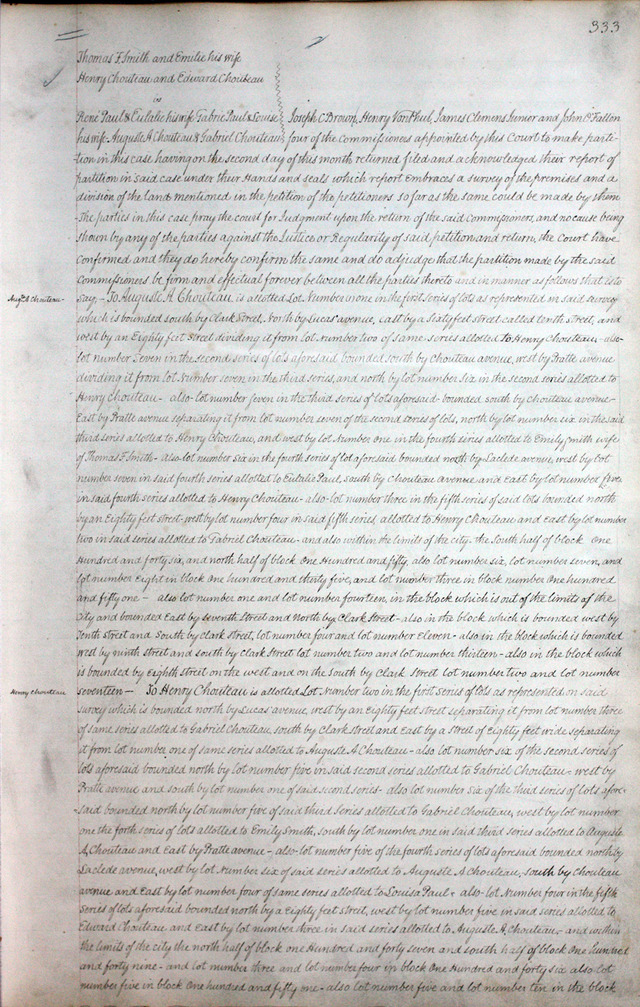 333
Thomas F Smith and Emilie his wife
Henry Chouteau and Edward Chouteau
vs
René Paul & Eulalie his wife Gabriel Paul & Louise Joseph C Brown, Henry Von Phul, James Clemens Junior and John O'Fallon
his wife Auguste A Chouteau & Gabriel Chouteau four of the Commissioners appointed by this Court to make parti-
tion in this case having on the second day of this month returned filed and acknowledged their report of
partition in said case under their Hands and seals which report Embraces a survey of the premises and a
division of the land mentioned in the petition of the petitioners so far as the same could be made by them
The parties in this case pray the court for Judgment upon the return of the said Commissioners, and no cause being
shown by any of the parties against the Justice or Regularity of said petition and return, the Court have
confirmed and they do hereby confirm the same and do adjudge that the partition made by the said
Commissioners be firm and effectual forever between all the parties thereto and in manner as follows that is to
Augte A Chouteau
say,- To Auguste A. Chouteau is allotted Lot Number one in the first series of lots as represented in said survey
which is bounded south by Clark Street, North by Lucas' avenue, East by a Sixty feet street called tenth street, and
west by an Eighty feet Street dividing it from lot number two of same series allotted to Henry Chouteau - also
lot number seven in the second series of lots aforesaid bounded south by Chouteau avenue, west by Pratte avenue
dividing it from lot number seven in the third series, and north by lot number six in the second series allotted to
Henry Chouteau - also lot number seven in the third series of lots aforesaid bounded south by Chouteau avenue -
East by Pratte avenue separating it from lot number seven of the second series of lots, north by lot number six in the said
third series allotted to Henry Chouteau, and west by lot number one in the fourth series allotted to Emily Smith wife
of Thomas F Smith - also lot number six in the fourth series of lots aforesaid bounded north by Laclede avenue, west by lot
number seven in said fourth series allotted to Eulalie Paul, south by Chouteau avenue and East by lot number five
in said fourth series allotted to Henry Chouteau - also lot number three in the fifth series of said lots bounded north
by an Eighty feet street - west by lot number four in said fifth series, allotted to Henry Chouteau and east by lot number
two in said series allotted to Gabriel Chouteau - and also within the limits of the city the South half of block One
Hundred and forty six, and north half of block One Hundred and fifty, also lot number six, lot number seven, and
lot number Eight in block One hundred and thirty five, and lot number three in block number One hundred
and fifty one - also lot number one and lot number fourteen, in the block which is out of the limits of the
City and bounded East by seventh Street and North by Clark Street - also in the block which is bounded west by
Tenth street and South by Clark street, lot number four and lot number Eleven - also in the block which is bounded
west by ninth street and south by Clark Street lot number two and lot number thirteen - also in the block which
is bounded by Eighth Street on the west and on the South by Clark Street lot number two and lot number
Henry Chouteau
seventeen - To Henry Chouteau is allotted Lot Number two in the first series of lots as represented on said
survey which is bounded north by Lucas' avenue, west by an Eighty feet street separating it from lot number three
of same series allotted to Gabriel Chouteau, south by Clark street and East by a street of Eighty feet wide separating
it from lot number one of same series allotted to Auguste A Chouteau - also lot number six of the second series of
lots aforesaid bounded north by lot number five in said second series allotted to Gabriel Chouteau - west by
Pratte avenue and south by lot number one of said second series - also lot number six of the third series of lots afore-
said bounded north by lot number five of said third Series allotted to Gabriel Chouteau, west by lot number
one the forth series of lots allotted to Emily Smith, south by lot number one in said third series allotted to Auguste
A Chouteau and East by Pratte avenue - also lot number five of the fourth series of lots aforesaid bounded north by
Laclede avenue, west by lot Number six of said series allotted to Auguste A Chouteau, south by Chouteau
avenue and East by lot number four of same series allotted to Louisa Paul - also lot Number four in the fifth
series of lots aforesaid bounded north by a Eighty feet street, west by lot number five in said series allotted to
Edward Chouteau and East by lot number three in said series allotted to Auguste A Chouteau - and within
the limits of the city the north half of block One Hundred and forty seven and south half of block One Hundred
and forty nine - and lot number three and lot number four in block One Hundred and forty six also lot
number five in block One hundred and fifty one - also lot number five and lot number ten in the block